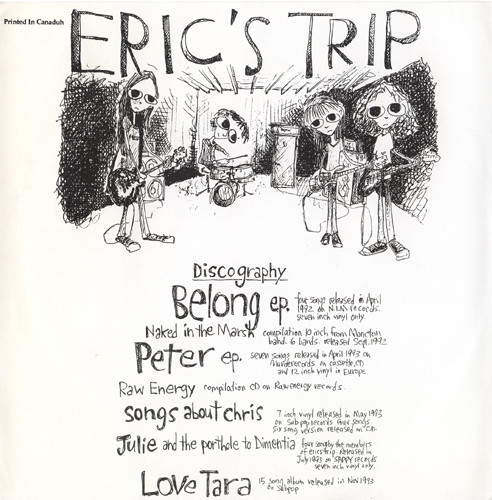 Printed In Canaduh
ERIC'S TRIP
Discography
Belong ep. four songs released in April
1992 on N.I.M records.
seven inch vinyl only.
Naked in the Marsh compilation 10 inch from Moncton
band. 6 bands. released Sept. 1992
Peter ep. seven songs released in April 1993 on
Murderecords on cassette, CD
and 12 inch vinyl in Europe.
Raw Energy compilation CD on Raw energy records.
songs about chris 7 inch vinyl released in May 1993
on Sub pop records four songs
six song version released on C.D.
Julie and the porthole to Dimentia four songs by the members
of erics trip. Released in
July 1993 on SAPPY records
seven inch vinyl only.
Love Tara 15 song album released in Nov 1993
on Subpop